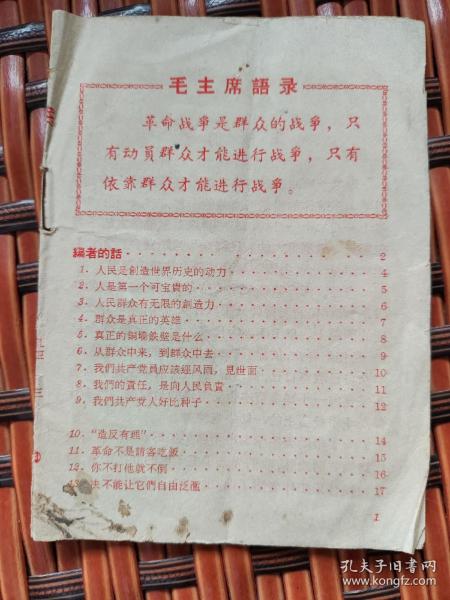 毛主席語录
革命战爭是群众的战爭，只
有动員群众才能进行战爭，只有
依靠群众才能进行战爭。
編者的話 2
1．人民是創造世界历史的动力 4
2．人是第一个可宝貴的 5
3．人民群众有无限的創造力 6
4．群众是真正的英雄 7
5．真正的銅墙鉄壁是什么 8
6．从群众中来，到群众中去 9
7．我們共产党員应該經风雨，見世面 10
8．我們的責任，是向人民負責 11
9．我們共产党人好比种子 12
10．“造反有理” 14
11．革命不是請客吃飯 15
12．你不打他就不倒 16
13．决不能让它們自由泛濫 17
1
孔夫子旧书网
kongfz.com